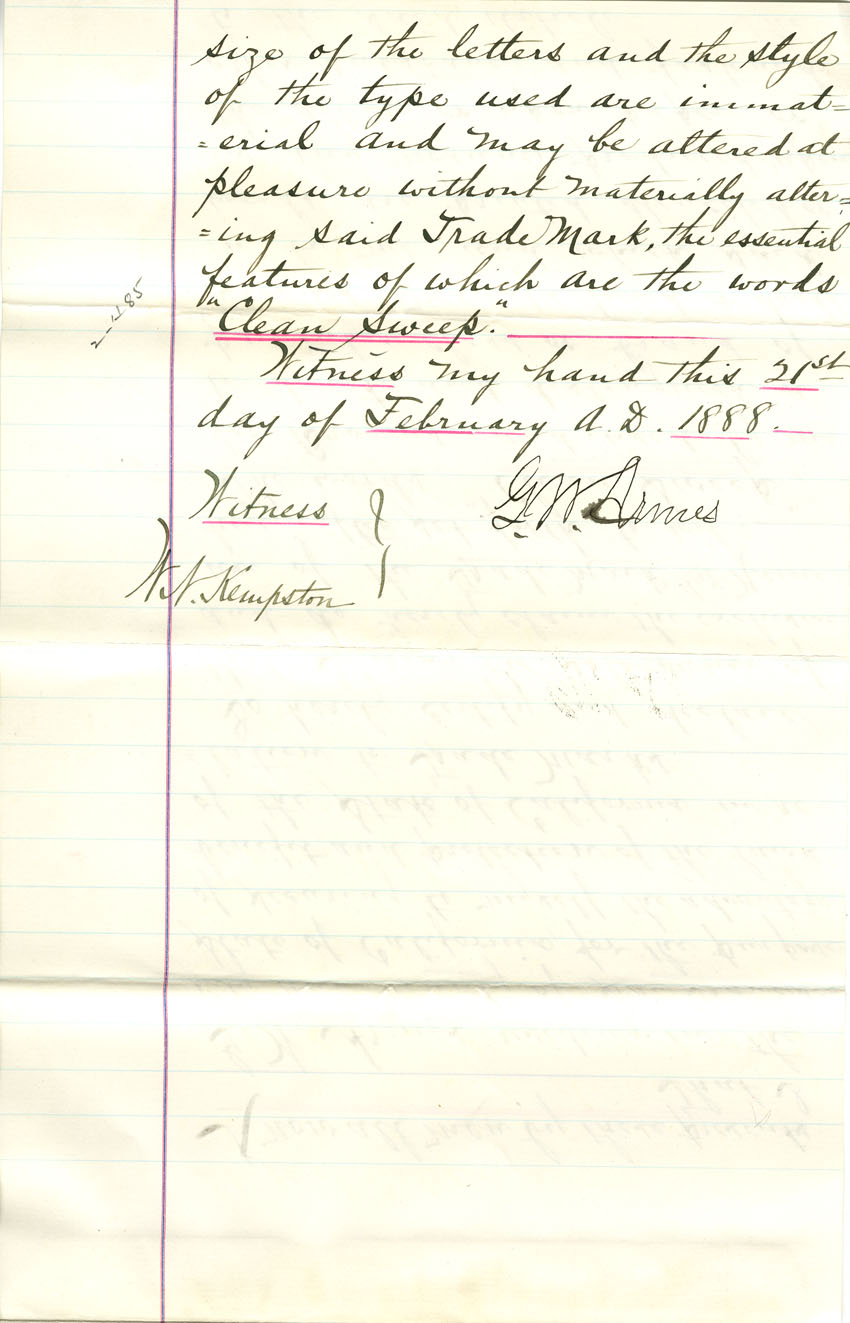 size of the letters and the style
of the type used are immat=
=erial and may be altered at
pleasure without materially alter=
=ing said Trade Mark, the essential
features of which are the words
"Clean Sweep."
Witness my hand this 21st
day of February A.D. 1888.
Witness
G. W. Armes
W. N. Kempston
2-485